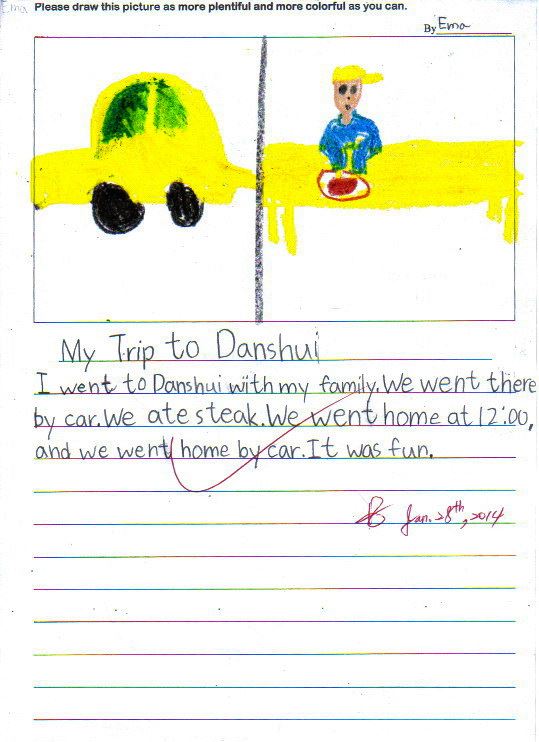 Ema Please draw this picture as more plentiful and more colorful as you can.
By Ema
My Trip to Danshui
I went to Danshui with my family. We went there
by car. We ate steak. We went home at 12:00,
and we went home by car. It was fun.
Jan. 28th, 2014